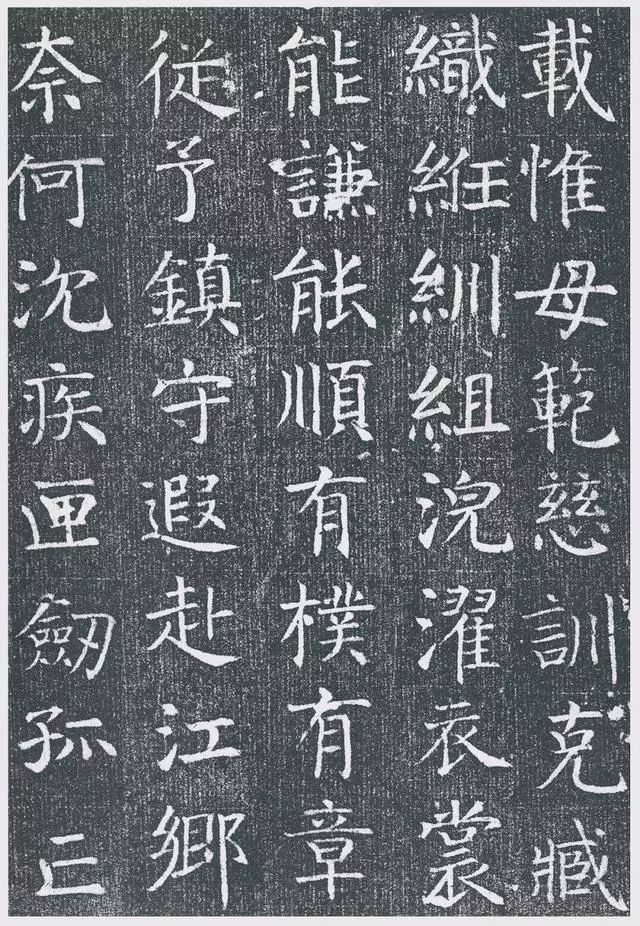 載惟母範慈訓克臧
織紝紃組浣濯衣裳
能謙能順有樸有章
従予鎮守遐赴江鄉
奈何沈疾匣劒孤亡